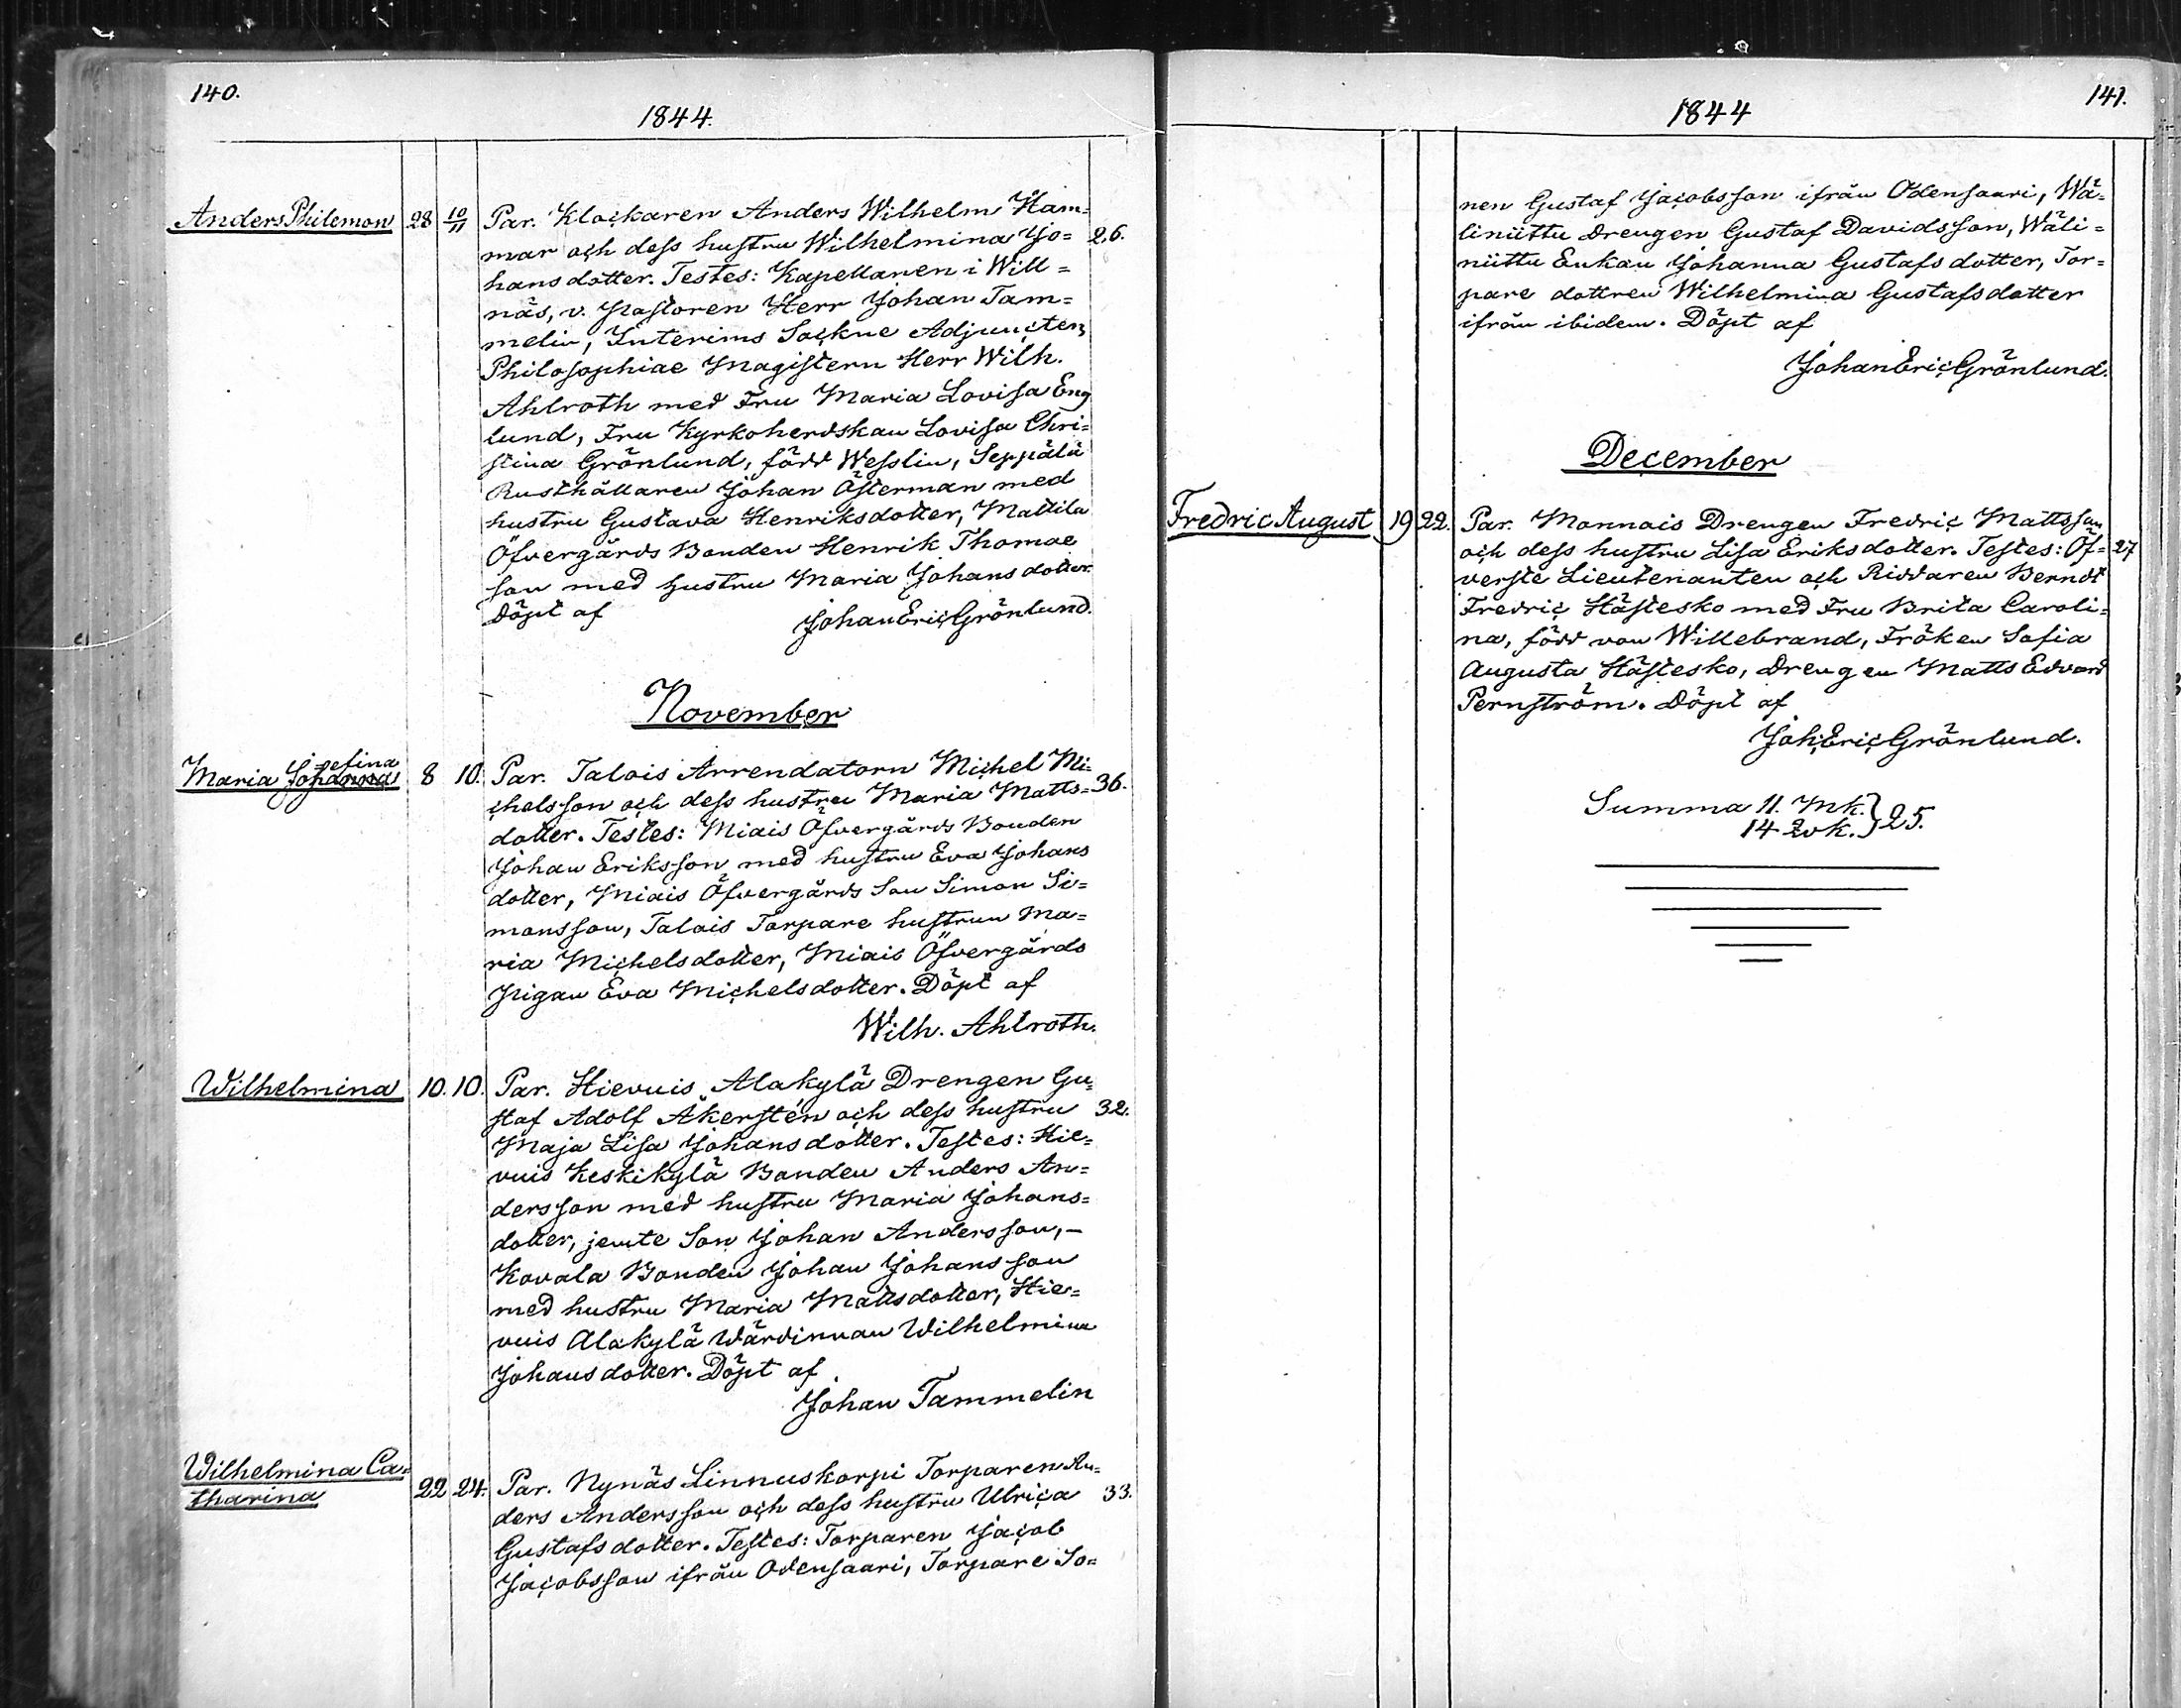 140.
1844.
Anders Philemon 28 10/11 Par. Klockaren Anders Wilhelm Ham=
mar och dess hustru Wilhelmina Jo= 26.
hansdotter. Testes: Kapellanen i Will=
näs, v. Pastoren Herr Johan Tam=
melin, Interims Sockne Adjuncten,
Philosophiae Magistern Herr Wilh.
Ahlroth med Fru Maria Lovisa Eng
lund, Fru Kyrkoherdskan Lovisa Chri=
stina Grönlund, född Wesslin, Seppälä
Rusthållaren Johan Österman med
hustru Gustava Henriksdotter, Mattila
Öfvergårds Bonden Henrik Thomae
son med hustru Maria Johansdotter.
Döpt af
Johan Eric Grönlund.
November
Maria Johanna sefina 8 10. Par. Talois Arrendatorn Michel Mi=
chelsson och dess hustru Maria Matts= 36.
dotter. Testes: Miais Öfvergårds Bonden
Johan Eriksson med hustru Eva Johans
dotter, Miais Öfvergårds Son Simon Si=
monsson, Talois Torpare hustrun Ma=
ria Michelsdotter, Miais Öfvergårds
Pigan Eva Michelsdotter. Döpt af
Wilh. Ahlroth.
Wilhelmina 10. 10. Par. Hievuis Alakylä Drengen Gu=
staf Adolf Åkerstén och dess hustru 32.
Maja Lisa Johansdotter. Testes: Hie=
vuis Keskikylä Bonden Anders An=
dersson med hustru Maria Johans=
dotter, jemte Son Johan Andersson, –
Kovala Bonden Johan Johansson
med hustru Maria Mattsdotter, Hie=
vuis Alakylä Wärdinnan Wilhelmina
Johansdotter. Döpt af
Johan Tammelin
Wilhelmina Ca=
tharina 22 24. Par. Nynäs Linnuskorpi Torparen An=
ders Andersson och dess hustru Ulrica 33.
Gustafsdotter. Testes: Torparen Jacob
Jacobsson ifrån Odensaari, Torpare So=
141.
1844
nen Gustaf Jacobsson ifrån Odensaari, Wä=
liniittu Drengen Gustaf Davidsson, Wäli=
niittu Enkan Johanna Gustafsdotter, Tor=
pare dottren Wilhelmina Gustafsdotter
ifrån ibidem. Döpt af
Johan Eric Grönlund.
December
Fredric August 19 22. Par. Monnais Drengen Fredric Mattsson
och dess hustru Lisa Eriksdotter. Testes: Öf= 27
verste Lieutenanten och Riddaren Berndt
Fredric Hästesko med Fru Brita Caroli=
na, född von Willebrand, Fröken Sofia
Augusta Hästesko, Drengen Matts Edvard
Pernström. Döpt af
Joh. Eric Grönlund.
Summa 11. Mk. } 25.
14 Qvk.